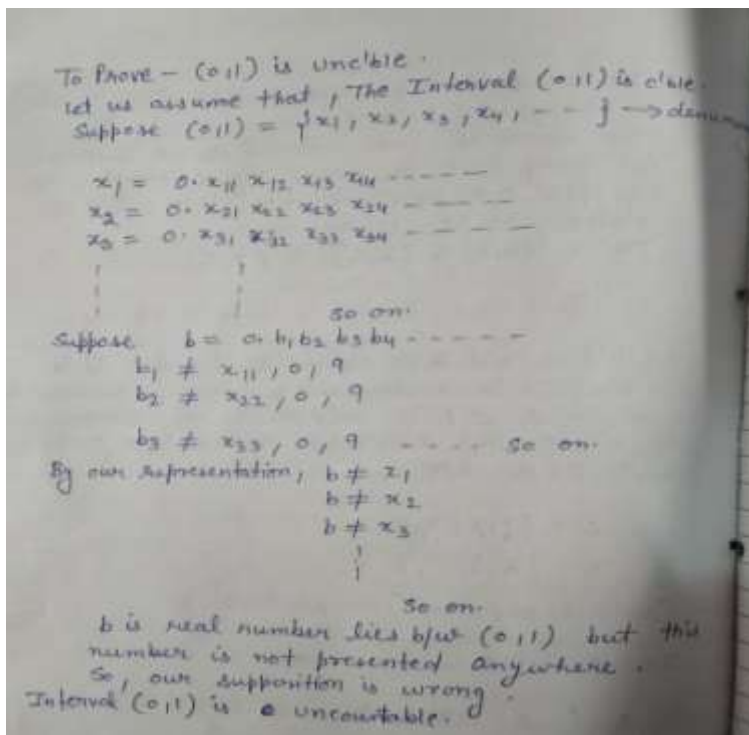 To Prove - (0,1) is unc'ble.
Let us assume that, The Interval (0,1) is c'ble.
Suppose (0,1) = {x1, x2, x3, x4, -- } →
x1 = 0. x11 x12 x13 x14 ------
x2 = 0. x21 x22 x23 x24 ------
x3 = 0. x31 x32 x33 x34 ------
so on.
Suppose b = 0. b1 b2 b3 b4 ------
b1 ≠ x11, 0, 9
b2 ≠ x22, 0, 9
b3 ≠ x33, 0, 9 ---- so on.
By our representation, b ≠ x1
b ≠ x2
b ≠ x3
So on.
b is real number lies b/w (0,1) but this
number is not presented anywhere.
So, our supposition is wrong.
Interval (0,1) is uncountable.